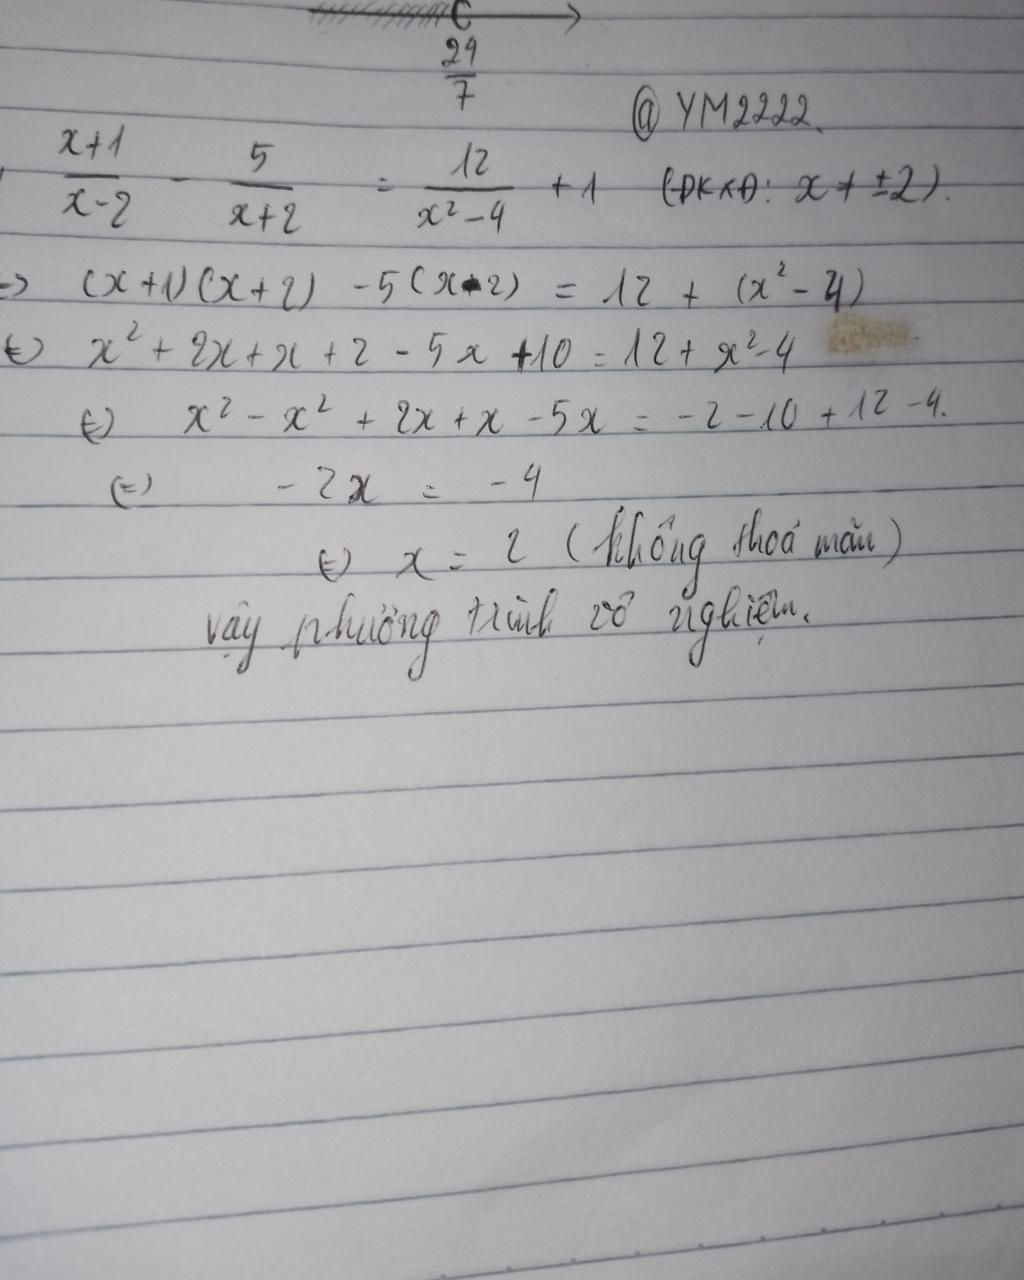 24/7
@ YM2222.
(x+1)/(x-2) - 5/(x+2) = 12/(x²-4) + 1 (ĐKXĐ: x ≠ ±2).
=> (x+1)(x+2) - 5(x-2) = 12 + (x²-4)
(=) x² + 2x + x + 2 - 5x + 10 = 12 + x²-4
(=) x² - x² + 2x + x - 5x = -2 - 10 + 12 - 4.
(=) - 2x = - 4
(=) x = 2 (không thoả mãn)
vậy phương trình vô nghiệm.